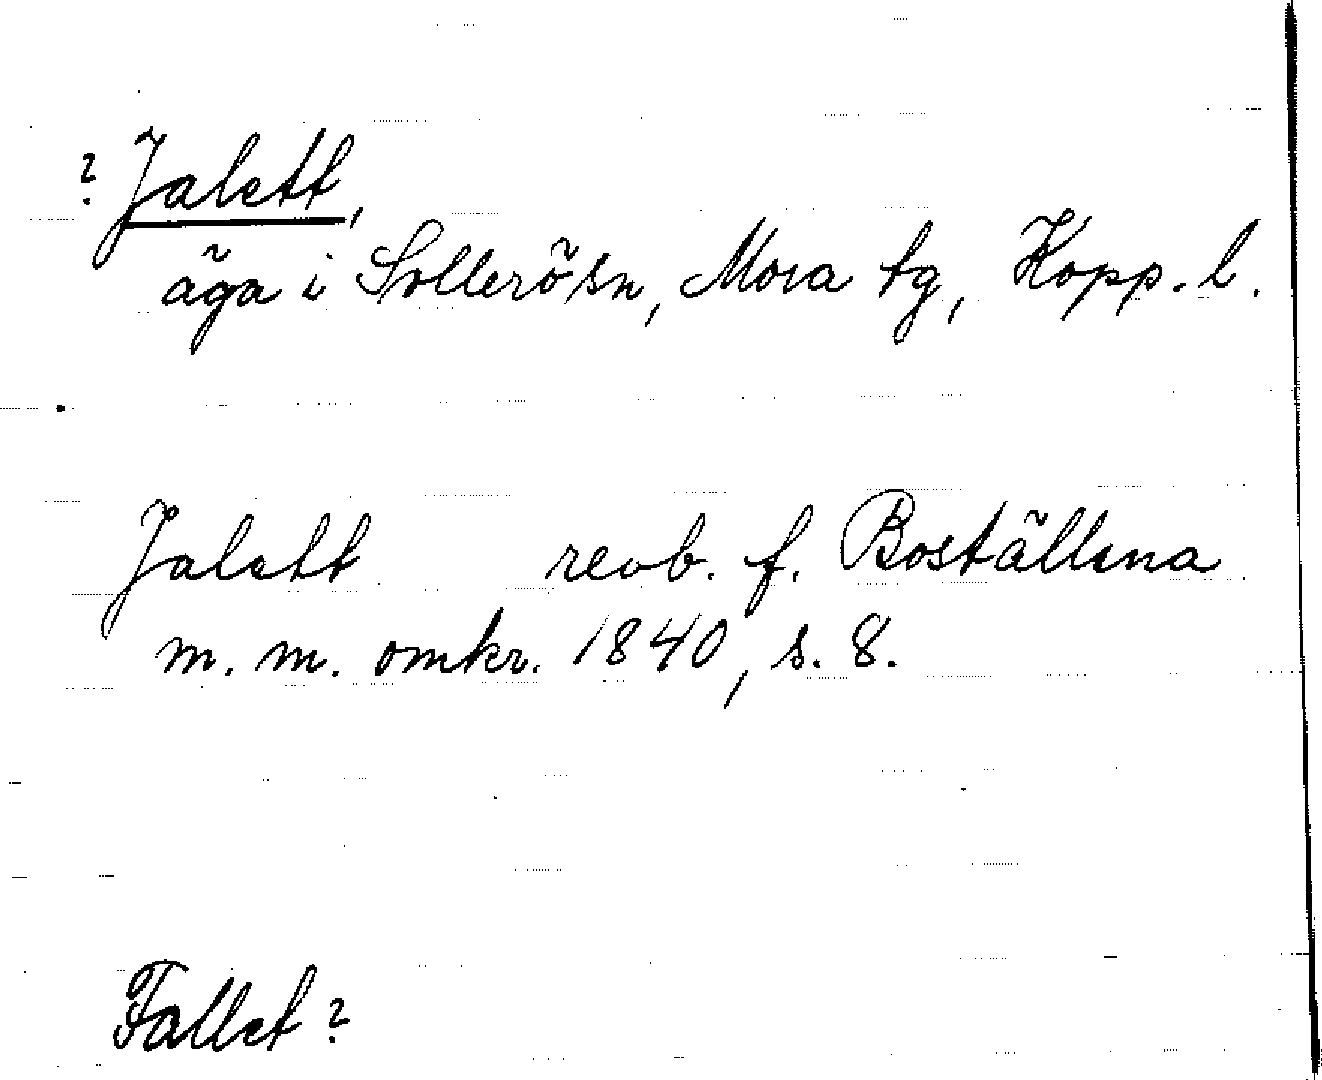 ? Jalett,
äga i Sollerösn, Mora tg, Kopp. l.
Jalett revb. f. Boställena
m. m. omkr. 1840, s. 8.
Fallet?